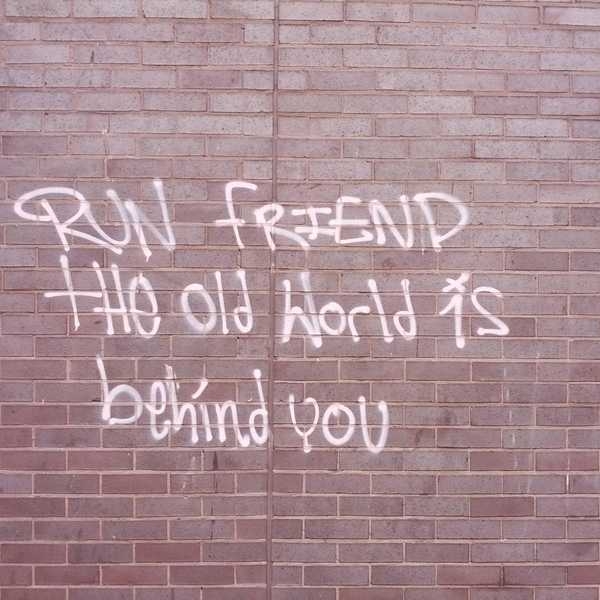 RUN FRIEND
tHe old World is
behind you